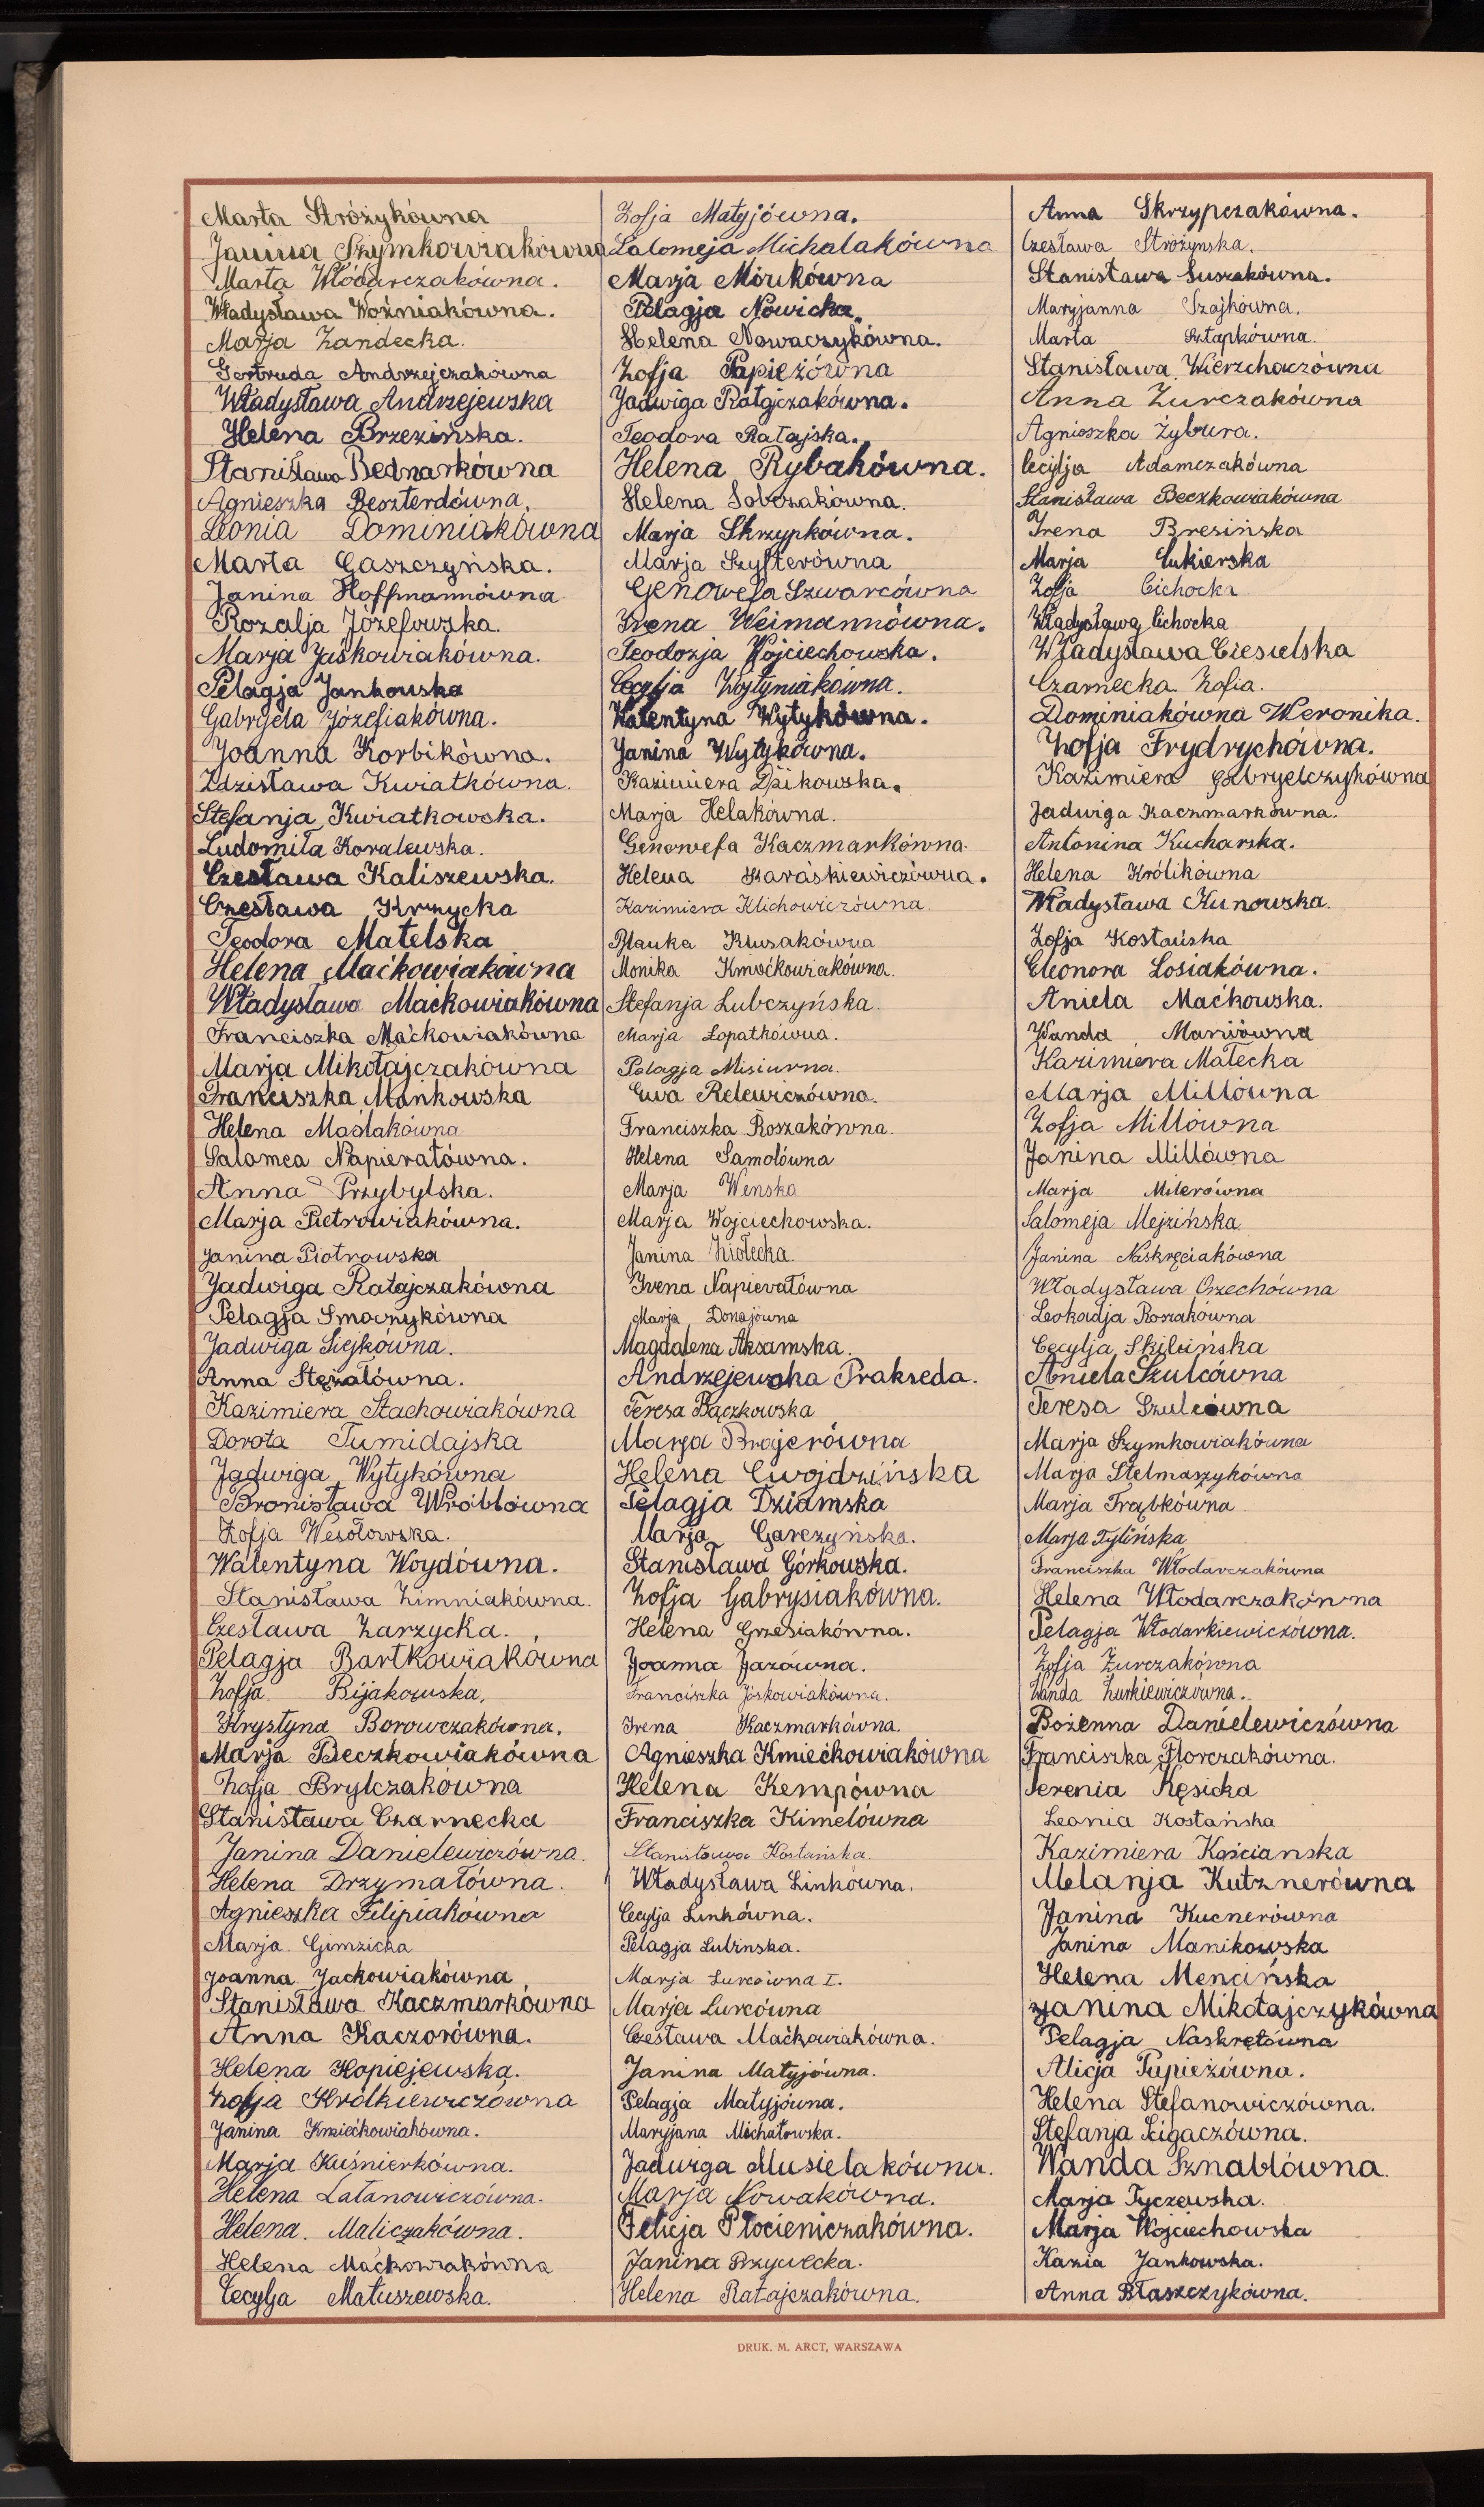 Marta Stróżykówna
Janina Szymkowiakówna
Marta Włódarczakówna.
Władysława Woźniakówna.
Marja Zandecka.
Gertruda Andrzejczakówna
Władysława Andrzejewska
Helena Brzezińska.
Stanisława Bednarkówna
Agnieszka Beszterdówna.
Leonia Dominiakówna
Marta Gaszczyńska.
Janina Hoffmannówna
Rozalja Józefowska.
Marja Jaśkowiakówna.
Pelagja Jankowska
Gabryela Józefiakówna.
Joanna Korbikówna.
Zdzisława Kwiatkówna.
Stefanja Kwiatkowska.
Ludomiła Kowalewska.
Czesława Kaliszewska.
Czesława Krzycka
Teodora Matelska
Helena Maćkowiakówna
Władysława Maćkowiakówna
Franciszka Maćkowiakówna
Marja Mikołajczakówna
Franciszka Mańkowska
Helena Maślakówna
Salomea Napierałówna.
Anna Przybylska.
Marja Pietrowiakówna.
Janina Piotrowska
Jadwiga Ratajczakówna
Pelagja Smoczykówna
Jadwiga Siejkówna.
Anna Stężałówna.
Kazimiera Stachowiakówna
Dorota Tumidajska
Jadwiga Wytykówna
Bronisława Wróblówna
Zofja Wesołowska.
Walentyna Woydówna.
Stanisława Zimniakówna.
Czesława Zarzycka.
Pelagja Bartkowiakówna
Zofja Bijakowska.
Krystyna Borowczakówna.
Marja Beczkowiakówna
Zofja Brylczakówna
Stanisława Czarnecka
Janina Danielewiczówna.
Helena Drzymałówna.
Agnieszka Filipiakówna
Marja Gimzicka
Joanna Jackowiakówna
Stanisława Kaczmarkówna
Anna Kaczorówna.
Helena Kopiejewska.
Zofja Królkiewiczówna
Janina Kmiećkowiakówna.
Marja Kuśnierkówna.
Helena Latanowiczówna.
Helena Maliczakówna.
Helena Maćkowiakówna
Cecylja Matuszewska.
Zofja Matyjówna.
Salomeja Michalakówna
Marja Mońkówna
Pelagja Nowicka.
Helena Nowaczykówna.
Zofja Papieżówna
Jadwiga Ratajczakówna.
Teodora Ratajska.
Helena Rybakówna.
Helena Sobczakówna.
Marja Skrzypkówna.
Marja Szyfterówna
Genowefa Szwarcówna
Irena Weimannówna.
Teodozja Wojciechowska.
Cecylja Wojtyniakówna.
Walentyna Wytykówna.
Janina Wytykówna.
Kazimiera Dzikowska.
Marja Helakówna.
Genowefa Kaczmarkówna.
Helena Karaśkiewiczówna.
Kazimiera Klichowiczówna.
Blanka Klusakówna
Monika Kmiećkowiakówna.
Stefanja Lubczyńska.
Marja Łopatkówna.
Pelagja Misiurna.
Ewa Relewiczówna.
Franciszka Roszakówna.
Helena Samolówna
Marja Wenska
Marja Wojciechowska.
Janina Ziołecka.
Irena Napierałówna
Marja Donajówna
Magdalena Aksamska.
Andrzejewska Prakseda.
Teresa Bączkowska
Marja Brajerówna
Helena Cwojdzińska
Pelagja Dziamska
Marja Garczyńska.
Stanisława Górkowska.
Zofja Gabrysiakówna.
Helena Grzesiakówna.
Joanna Jazówna.
Franciszka Jóśkowiakówna.
Irena Kaczmarkówna.
Agnieszka Kmiećkowiakówna
Helena Kempówna
Franciszka Kimelówna
Stanisława Kostańska.
Władysława Linkówna.
Cecylja Linkówna.
Pelagja Lubinska.
Marja Lurcówna I.
Marja Lurcówna
Czesława Maćkowiakówna.
Janina Matyjówna.
Pelagja Matyjówna.
Maryjana Michałowska.
Jadwiga Musielakówna.
Marja Nowakówna.
Felicja Płócieniczakówna.
Janina Przywecka.
Helena Ratajczakówna.
Anna Skrzypczakówna.
Czesława Stróżynska.
Stanisława Suszakówna.
Maryjanna Szajkówna.
Marta Sztapkówna.
Stanisława Wierzchaczówna
Anna Żurczakówna
Agnieszka Żybura.
Cecylja Adamczakówna
Stanisława Beczkowiakówna
Irena Bresińska
Marja Cukierska
Zofja Cichocka
Władysława Cichocka
Władysława Ciesielska
Czarnecka Zofia.
Dominiakówna Weronika.
Zofja Frydrychówna.
Kazimiera Gabryelczykówna
Jadwiga Kaczmarkówna.
Antonina Kucharska.
Helena Królikówna
Władysława Kunowska.
Zofja Kostańska
Eleonora Łosiakówna.
Aniela Maćkowska.
Wanda Maniówna
Kazimiera Małecka
Marja Millówna
Zofja Millówna
Janina Millówna
Marja Milerówna
Salomeja Mejzińska
Janina Naskręciakówna
Władysława Orzechówna
Leokadja Roszakówna
Cecylja Skibińska
Aniela Szulcówna
Teresa Szulcówna
Marja Szymkowiakówna
Marja Stelmaszykówna
Marja Trąbkówna
Marja Tylińska
Franciszka Włodarczakówna
Helena Włodarczakówna
Pelagja Włodarkiewiczówna.
Zofja Żurczakówna
Wanda Żurkiewiczówna.
Bożenna Danielewiczówna
Franciszka Florczakówna.
Serenia Kęsicka
Leonia Kostańska
Kazimiera Kościanska
Melanja Kutznerówna
Janina Kucnerówna
Janina Manikowska
Helena Mencińska
Janina Mikołajczykówna
Pelagja Naskrętówna
Alicja Papieżówna.
Helena Stefanowiczówna.
Stefanja Ścigaczówna.
Wanda Sznablówna.
Marja Tyczewska.
Marja Wojciechowska
Kazia Jankowska.
Anna Błaszczykówna.
DRUK. M. ARCT, WARSZAWA